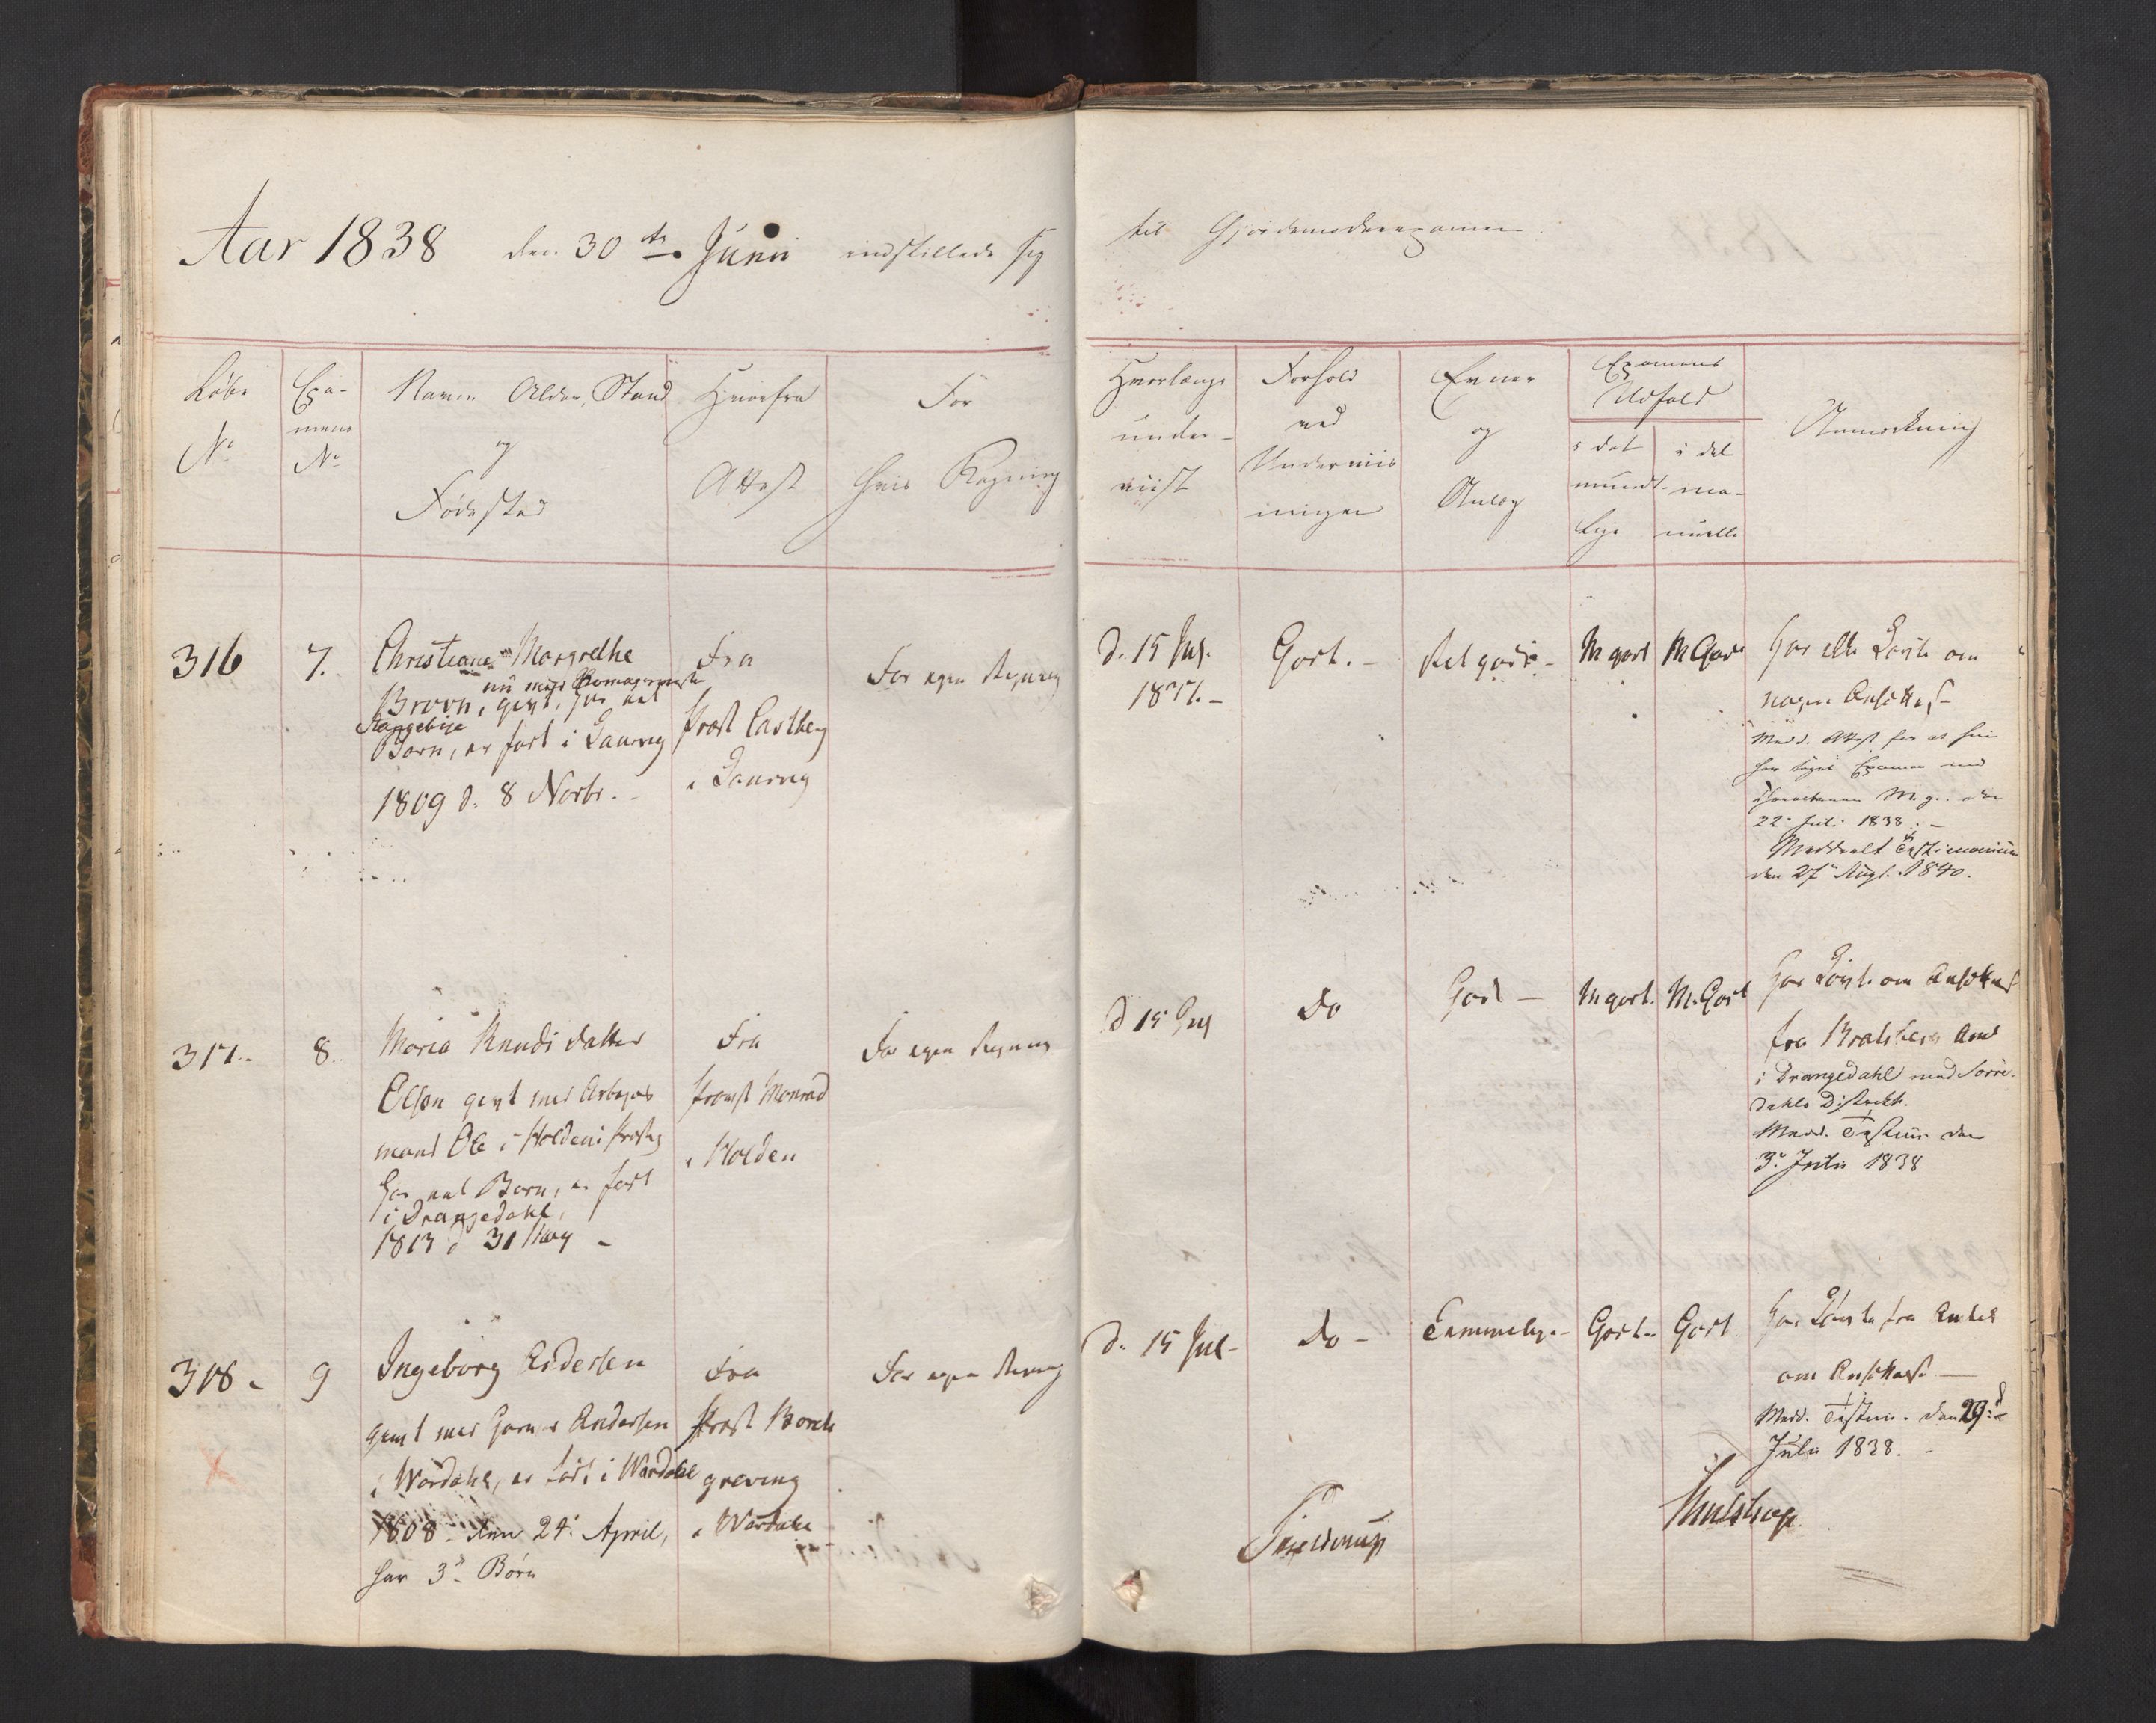 Aar 1838 den 30te Junii indstillede sig
til Gjordemoderexamen
Løbe
No
Exa-
mens
No
Navn Alder, Stand
og
Fødested
Hvorfra
Attest
For
hvis Regning
Hvorlænge
under-
viist
Forhold
ved
Underviis
ningen
Evner
og
Anlæg
Examens
Udfald
i det
mundt-
lige
i det
ma-
nuelle
Anmærkning
316
7.
Christiane Margrethe
nu med
Brovn, givt, har eet
Stangebije
Barn, er født i Laurvig
1809 d. 8 Novbr.
Fra
Prost
i Laurvig
For egen Regning
d. 15 Jul.
1837.-
Godt.-
Ret gode-
M godt
M Godt
har ikke Løvte om
nogen Ansættelse
Medd. Attest for at hun
har taget Examen med
Characteren M. g. den
22. Juli 1838.-
Meddeelt Testimonium
den 27 Augt. 1840.
317.-
8
Maria Knuds datter
Olsen givt med Arbejds
mand Ole i Holdens Prestg
har eet Barn, er født
i Drangedahl,
1813 d 31 May -
Fra
Provst Monrad
i Holden
For egen Regning
d 15 Jul
Do
God -
M godt.
M. Godt
har Løvte om Ansættelse
fra Bratsberg Amt
i Drangedahl med Tørre-
dahls District.
Medd. Testim. den
3. Julii 1838
318-
9
Ingeborg Andersen
givt med Andersen
i Wærdahl, er født i Wærdahl
1808 den 24. April,
har 3 Børn
Fra
Prost Borch
greving
i Wærdahl
For egen Regning
d. 15 Jul-
Do -
Temmelige-
Godt-
Godt
har Løvte fra Amtet
om Ansættelse
Medd. Testim. den 29de
Julii 1838.-
Thulstrup